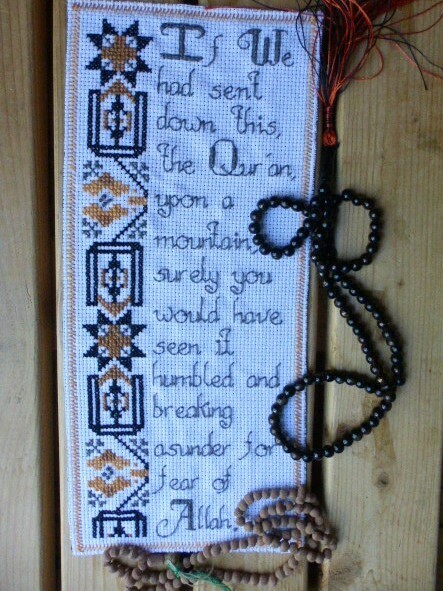 If We
had sent
down this,
the Qur'an,
upon a
mountain,
surely you
would have
seen it
humbled and
breaking
asunder for
fear of
Allah